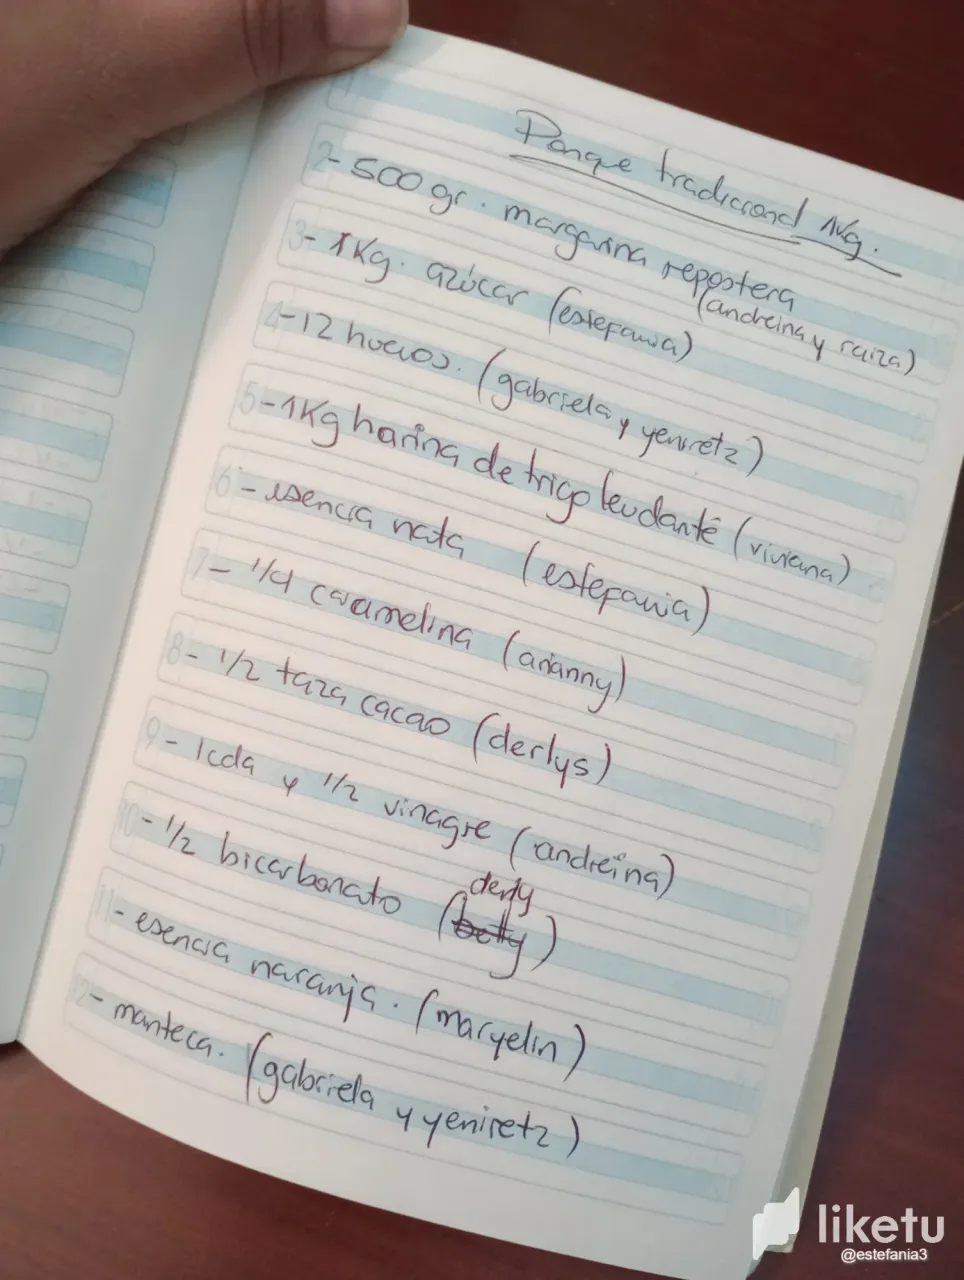 Ponque tradicional 1Kg.
2- 500 gr. margarina repostera
(andreina y raiza)
3- 1Kg. azúcar (estefania)
4- 12 huevos. (gabriela y yeniretz)
5- 1Kg harina de trigo leudante (viviana)
6- esencia nata (estefania)
7- 1/4 caramelina (arianny)
8- 1/2 taza cacao (derlys)
9- 1cda y 1/2 vinagre (andreina)
derly
10- 1/2 bicarbonato (betty)
11- esencia naranja. (maryelin)
12- manteca. (gabriela y yeniretz)
liketu
@estefania3